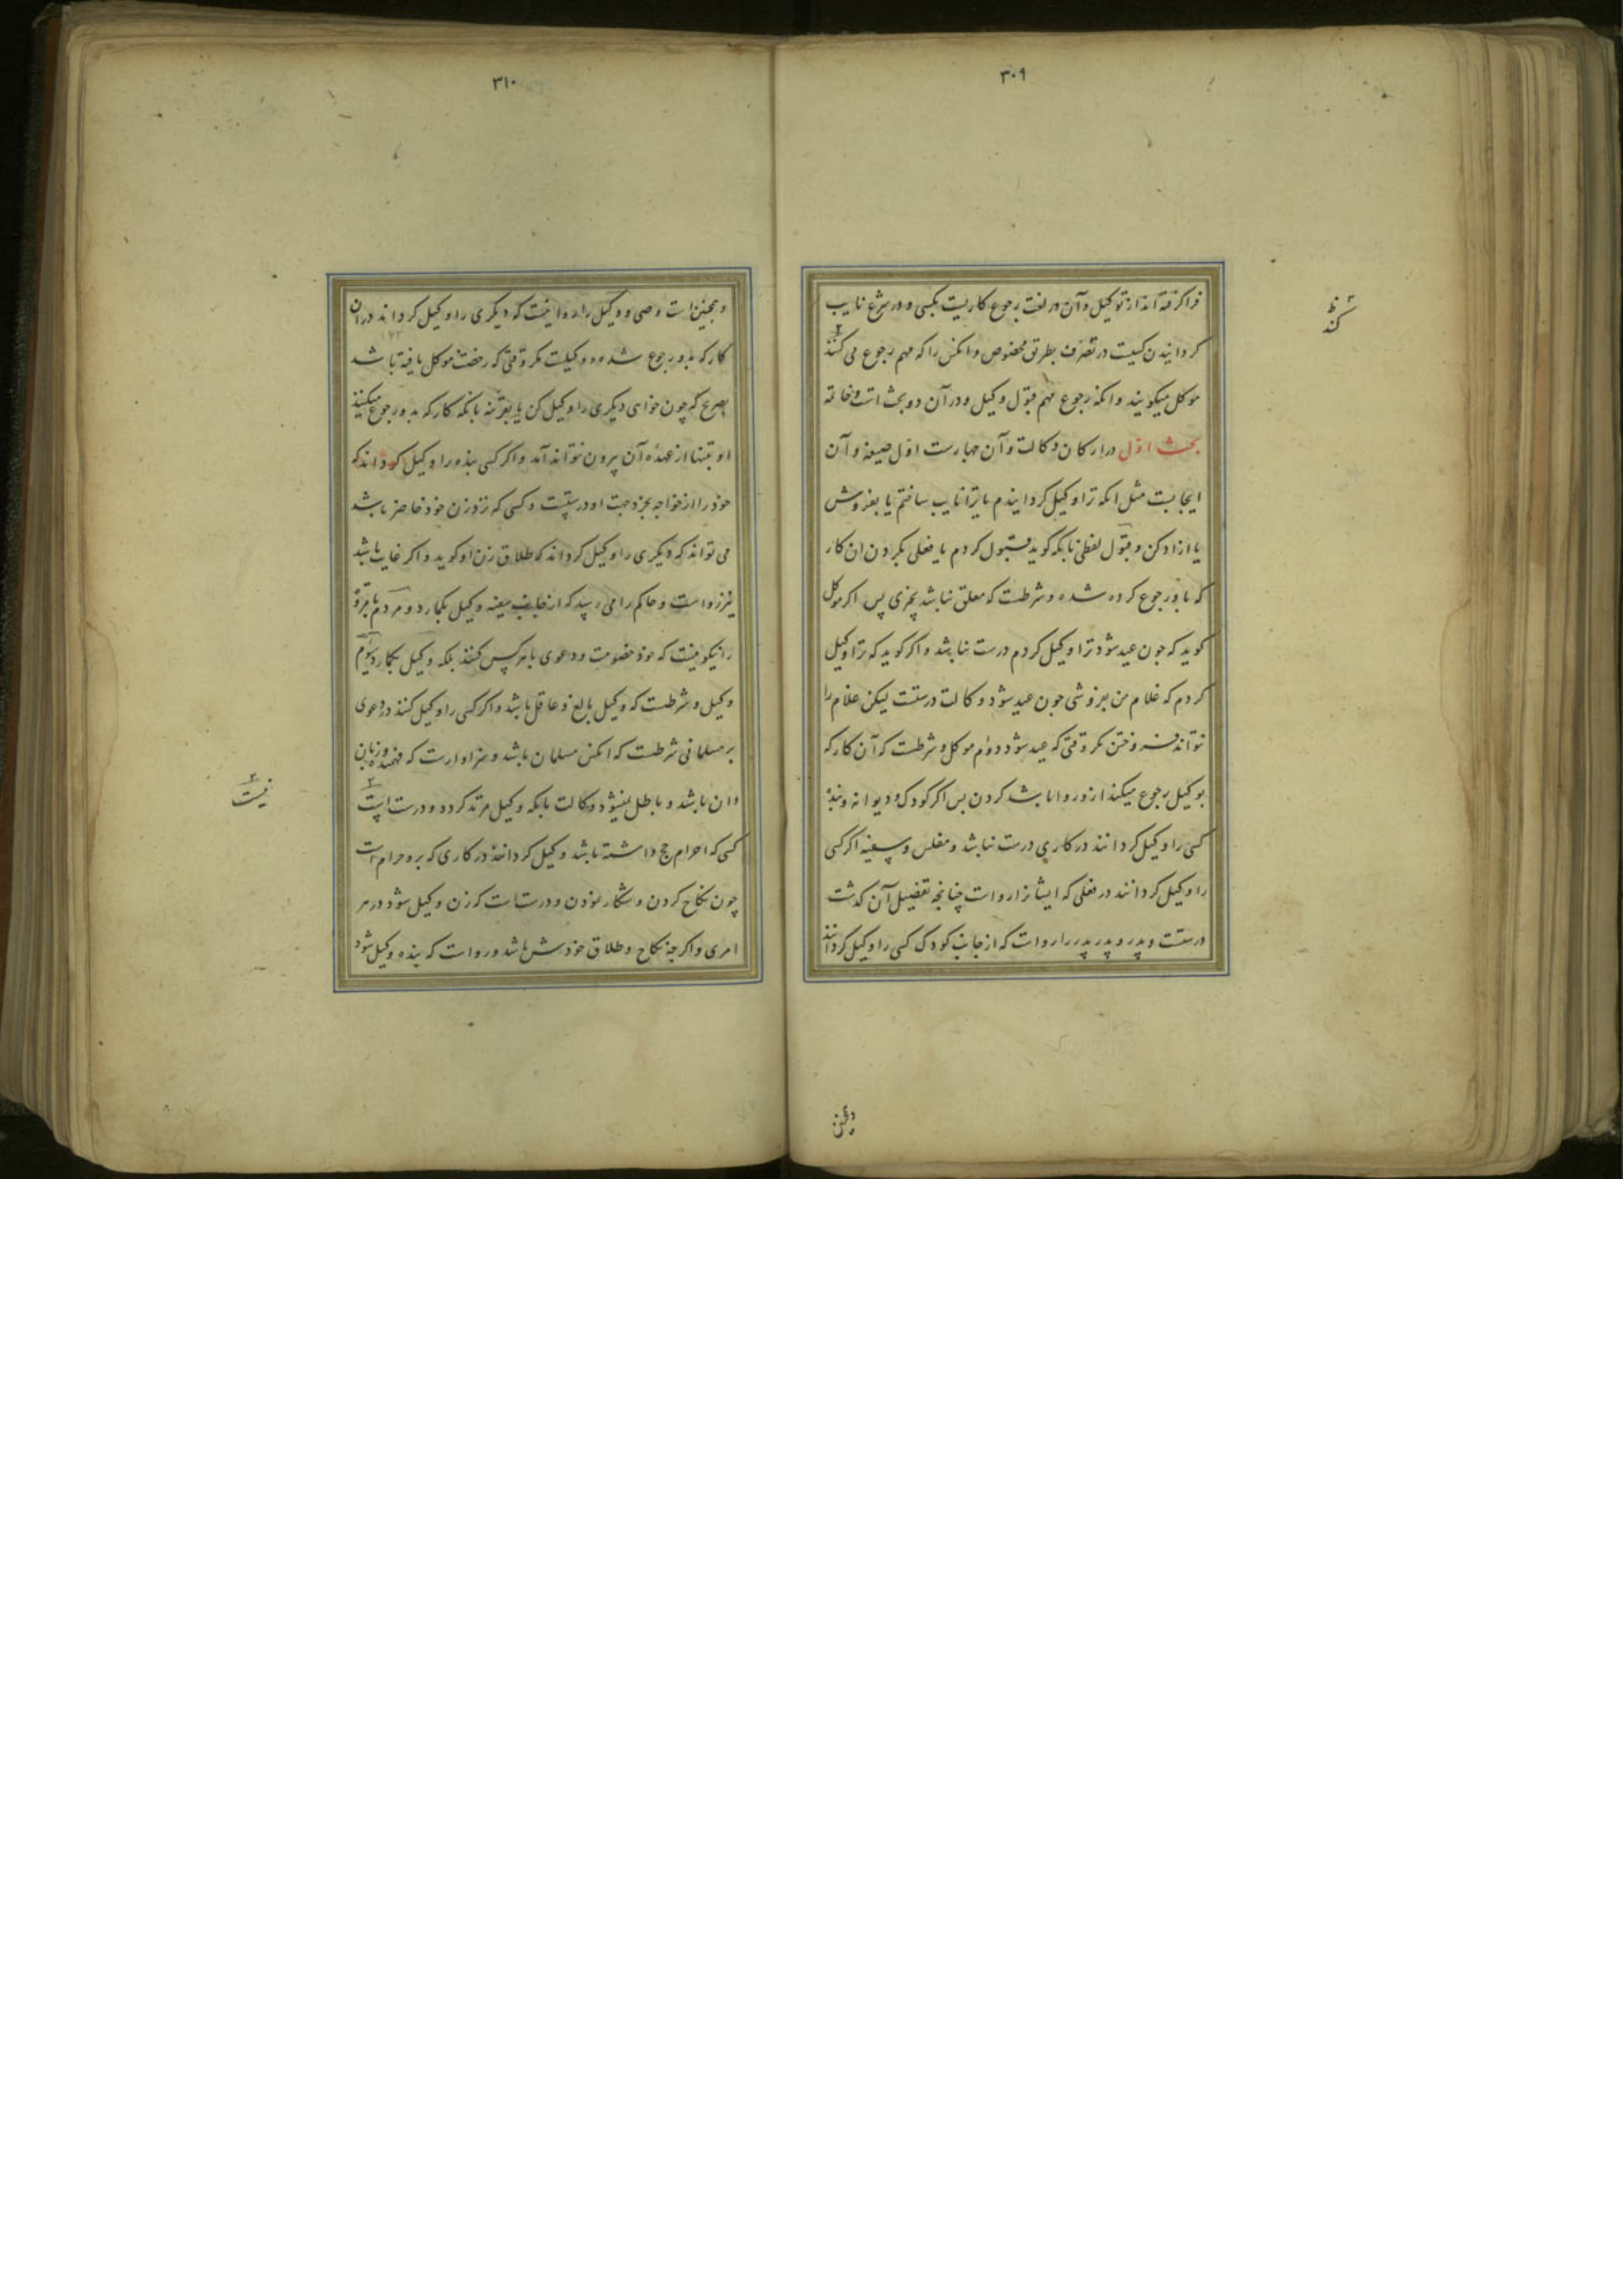 ۳۰۹
فراگرفته اند از توکیل و آن در لغت رجوع کاریست بکسی و در شرع نایب
کردانیدن کسیت در تصرف بطریق مخصوص و انکس را که مهم رجوع می کنند
موکل میکویند و انکه رجوع مهم قبول وکیل و در آن دو بحث است و خاتمه
بحث اول در ارکان وکالت و آن چهارست اول صیغه و آن
ایجابست مثل انکه ترا وکیل کردانیدم یا ترا نایب ساختم یا بفروش
یا ازاد کن و قبول لفظی بانکه کوید قبول کردم یا فعلی بکردن ان کار
که باو رجوع کرده شده و شرطست که معلق نباشد بچیزی پس اکر موکل
کوید که جون عید شود ترا وکیل کردم درست نباشد و اکر کوید که ترا وکیل
کردم که غلام من بفروشی جون عید شود وکالت درستست لیکن غلام را
نتواند فروختن مکر وقتی که عید شود دوم موکل و شرطست که آن کار که
بوکیل رجوع میکند ازو روا باشد کردن بس اکر کودک و دیوانه و بنده
کسی را وکیل کردانند در کاری درست نباشد و مفلس و سفیه اکر کسی
را وکیل کردانند در فعلی که ایشانرا رواست چنانچه تفصیل آن کذشت
درستست و پدر و پدر پدر را رواست که از جانب کودک کسی را وکیل کردانند
کند
۳۱۰
و همچنین است وصی و وکیل را روا نیست که دیکری را وکیل کرداند در آن
کار که بدو رجوع شده و وکیلست مکر وقتی که رخصت موکل یافته باشد
بصریح که چون خواهی دیکری را وکیل کن یا بقرینه بانکه کار که بدو رجوع میکنند
او بتنها از عهده آن بیرون نتواند آمد و اکر کسی بنده را وکیل کرداند که
خود را از خواجه بخرد جهت او درستست و کسی که نزد زن خود حاضر باشد
می تواند که دیکری را وکیل کرداند که طلاق زن او کوید و اکر غایب باشد
نیز رواست و حاکم را می رسد که از جانب سفیه وکیل بکمارد و مردم با مروت
را نیکو نیست که خود خصومت و دعوی با هر کس کنند بلکه وکیل بکمارد سیوم
وکیل و شرطست که وکیل بالغ و عاقل باشد و اکر کسی را وکیل کنند در دعوی
بر مسلمانی شرطست که انکس مسلمان باشد و سزاوارست که فهمیده و زبان
دان باشد و باطل میشود وکالت بانکه وکیل مرتد کردد و درست است
کسی که احرام حج داشته باشد وکیل کردانند در کاری که برو حرام است
چون نکاح کردن و شکار نمودن و درستست که زن وکیل شود در هر
امری و اکرچه نکاح و طلاق خودش باشد و رواست که بنده وکیل شود
نیست